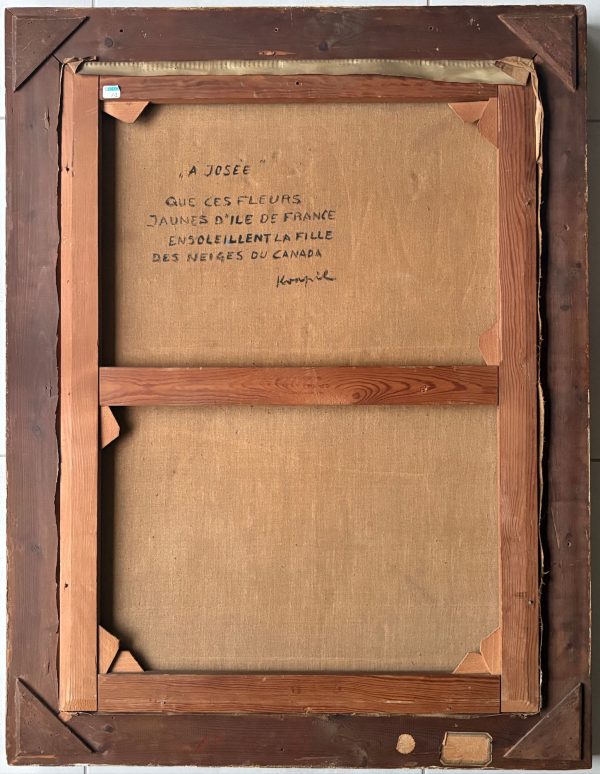 „A JOSÉE"
QUE CES FLEURS
JAUNES D'ILE DE FRANCE
ENSOLEILLENT LA FILLE
DES NEIGES DU CANADA
Kvapil